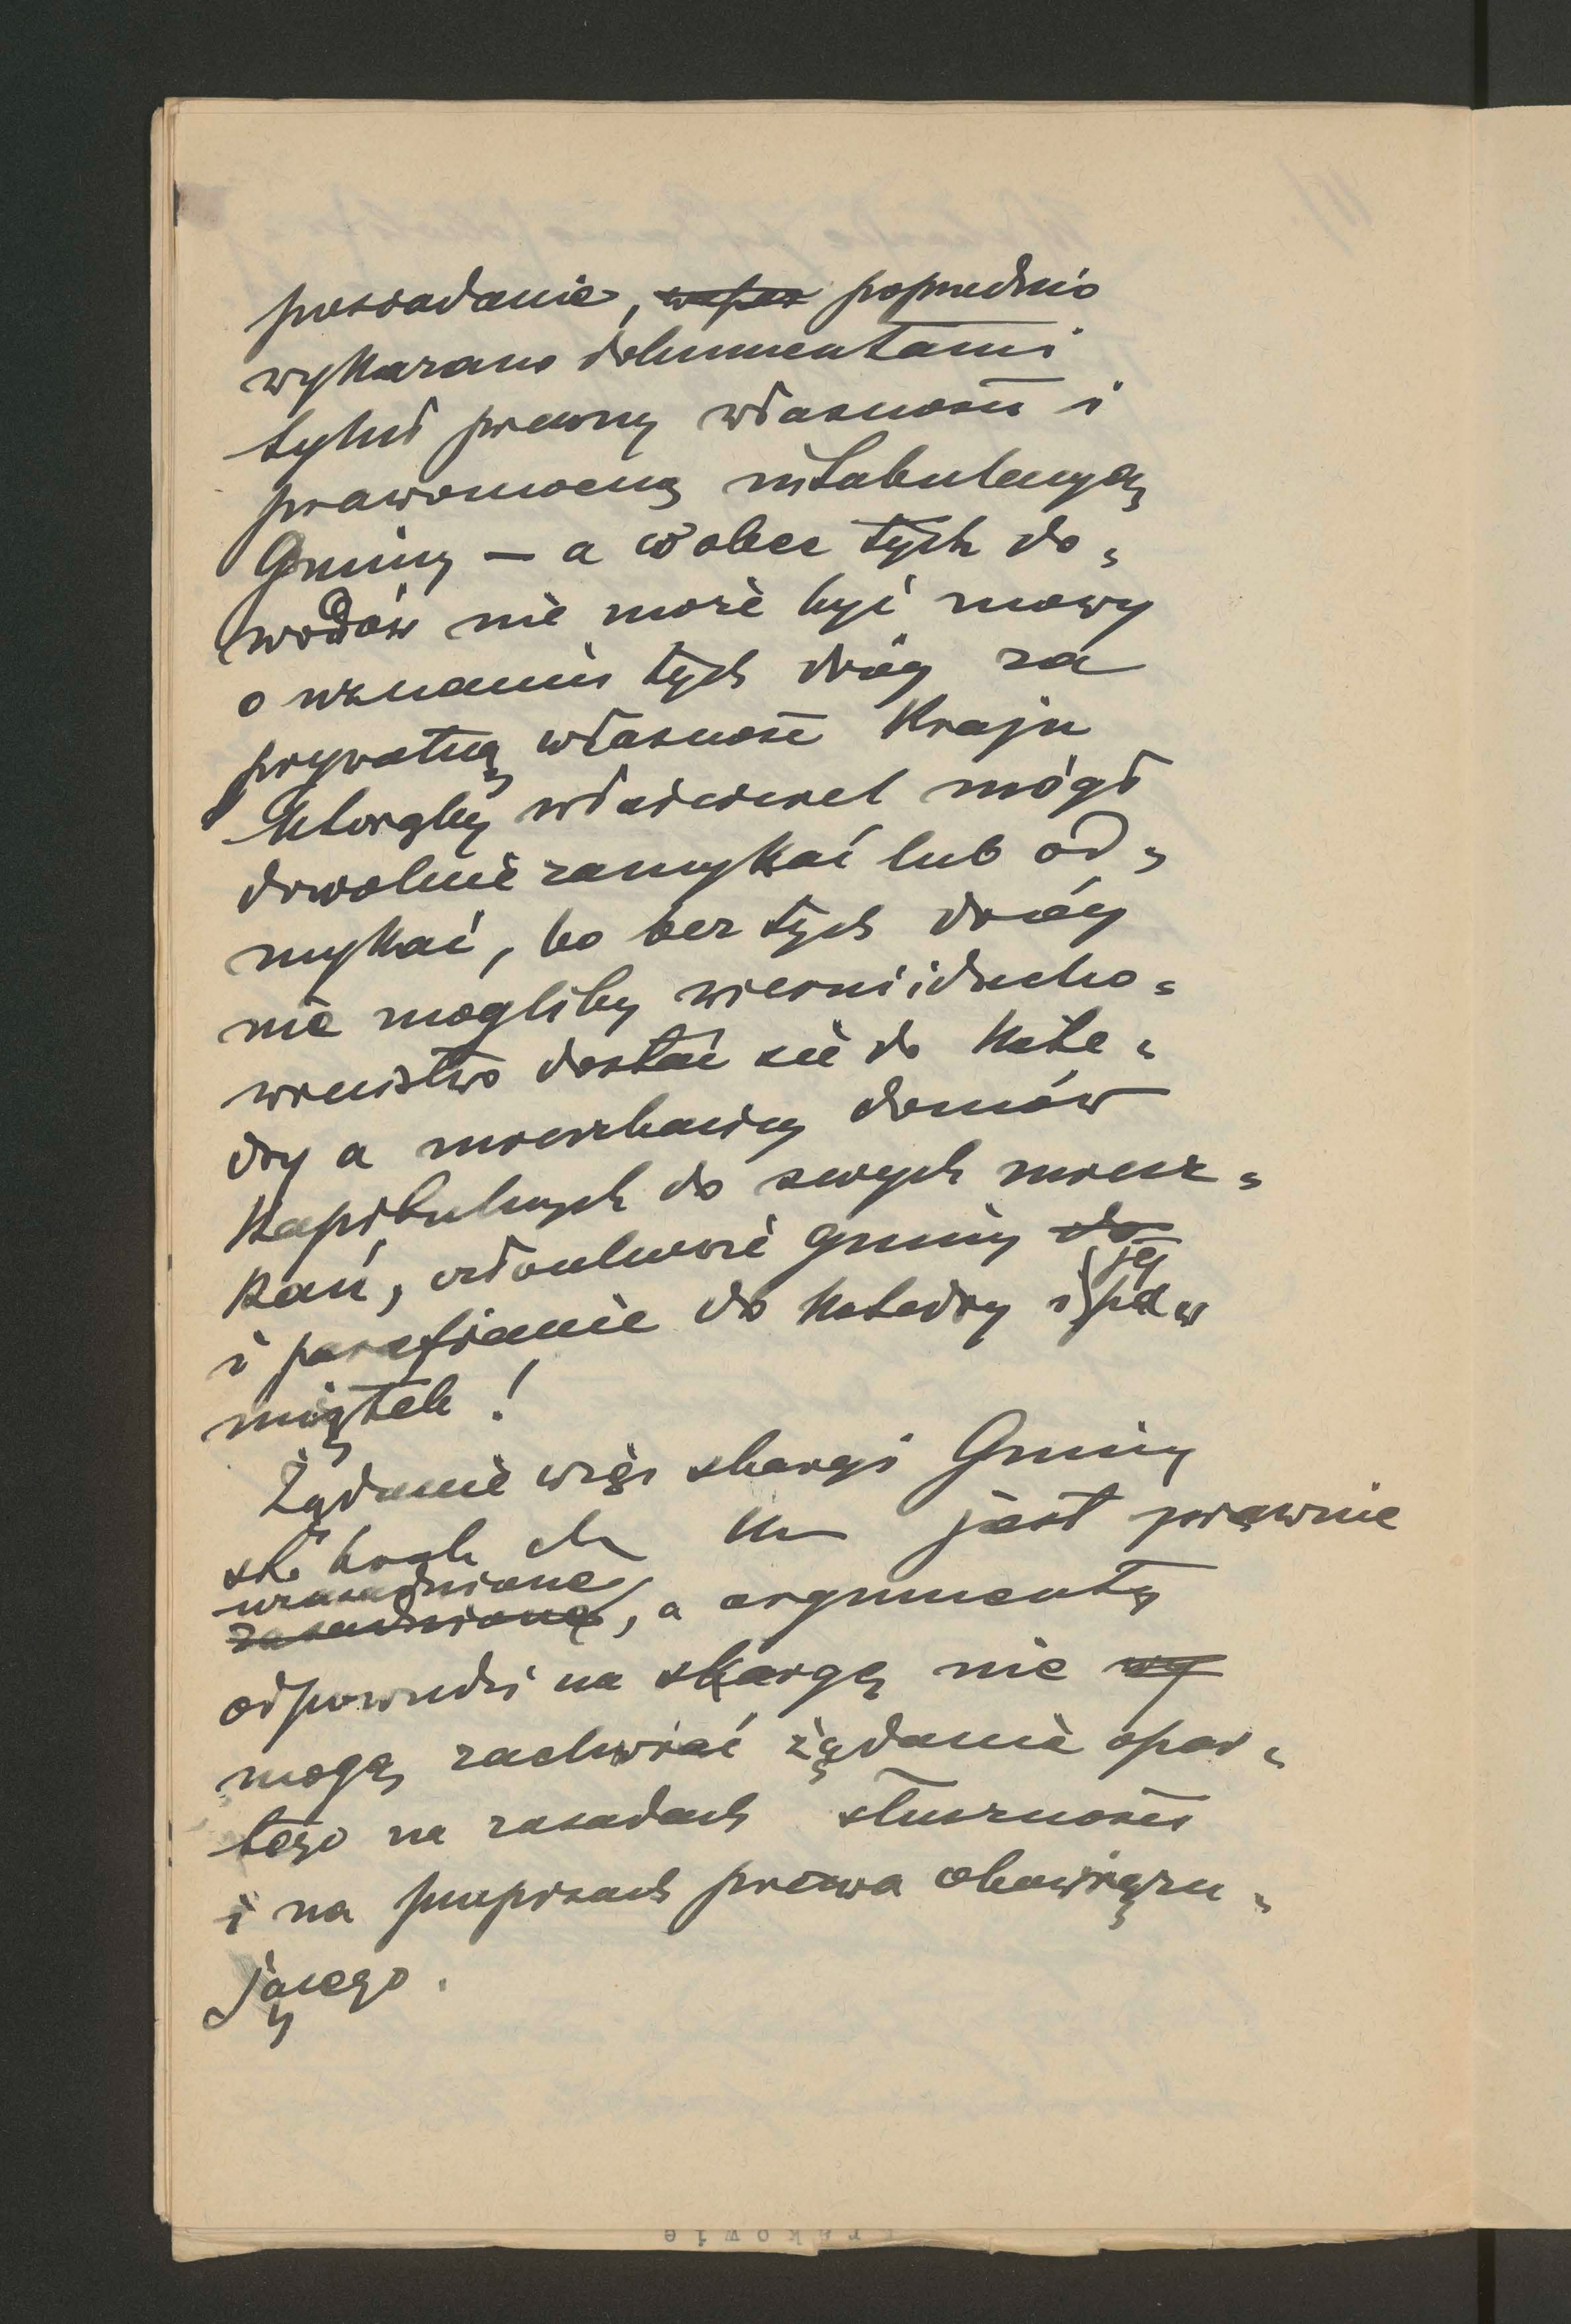 posiadanie, poprzednio
wykazano dokumentami
tytuł prawny własności i
prawomocną intabulacyą
Gminy — a wobec tych do„
wodów nie może być mowy
o uznaniu tych dróg za
prywatną własność Kraju
któreby właściciel mógł
dowolnie zamykać lub od„
mykać, bo bez tych dróg
nie mogliby wierni i ducho„
wieństwo dostać się do Kate„
dry a mieszkańcy domów
Kapitulnych do swych miesz„
kań, członkowie gminy do
i parafianie do Katedry i jej pa„
miątek!
Żądanie więc skargi Gminy
st. król. m. Kr jest prawnie
uzasadnione
zasadnione, a argumenty
odpowiedzi na skargę nie wy
mogą zachwiać żądania opar„
tego na zasadach słuszności
i na przepisach prawa obowiązu„
jącego.
rakowie